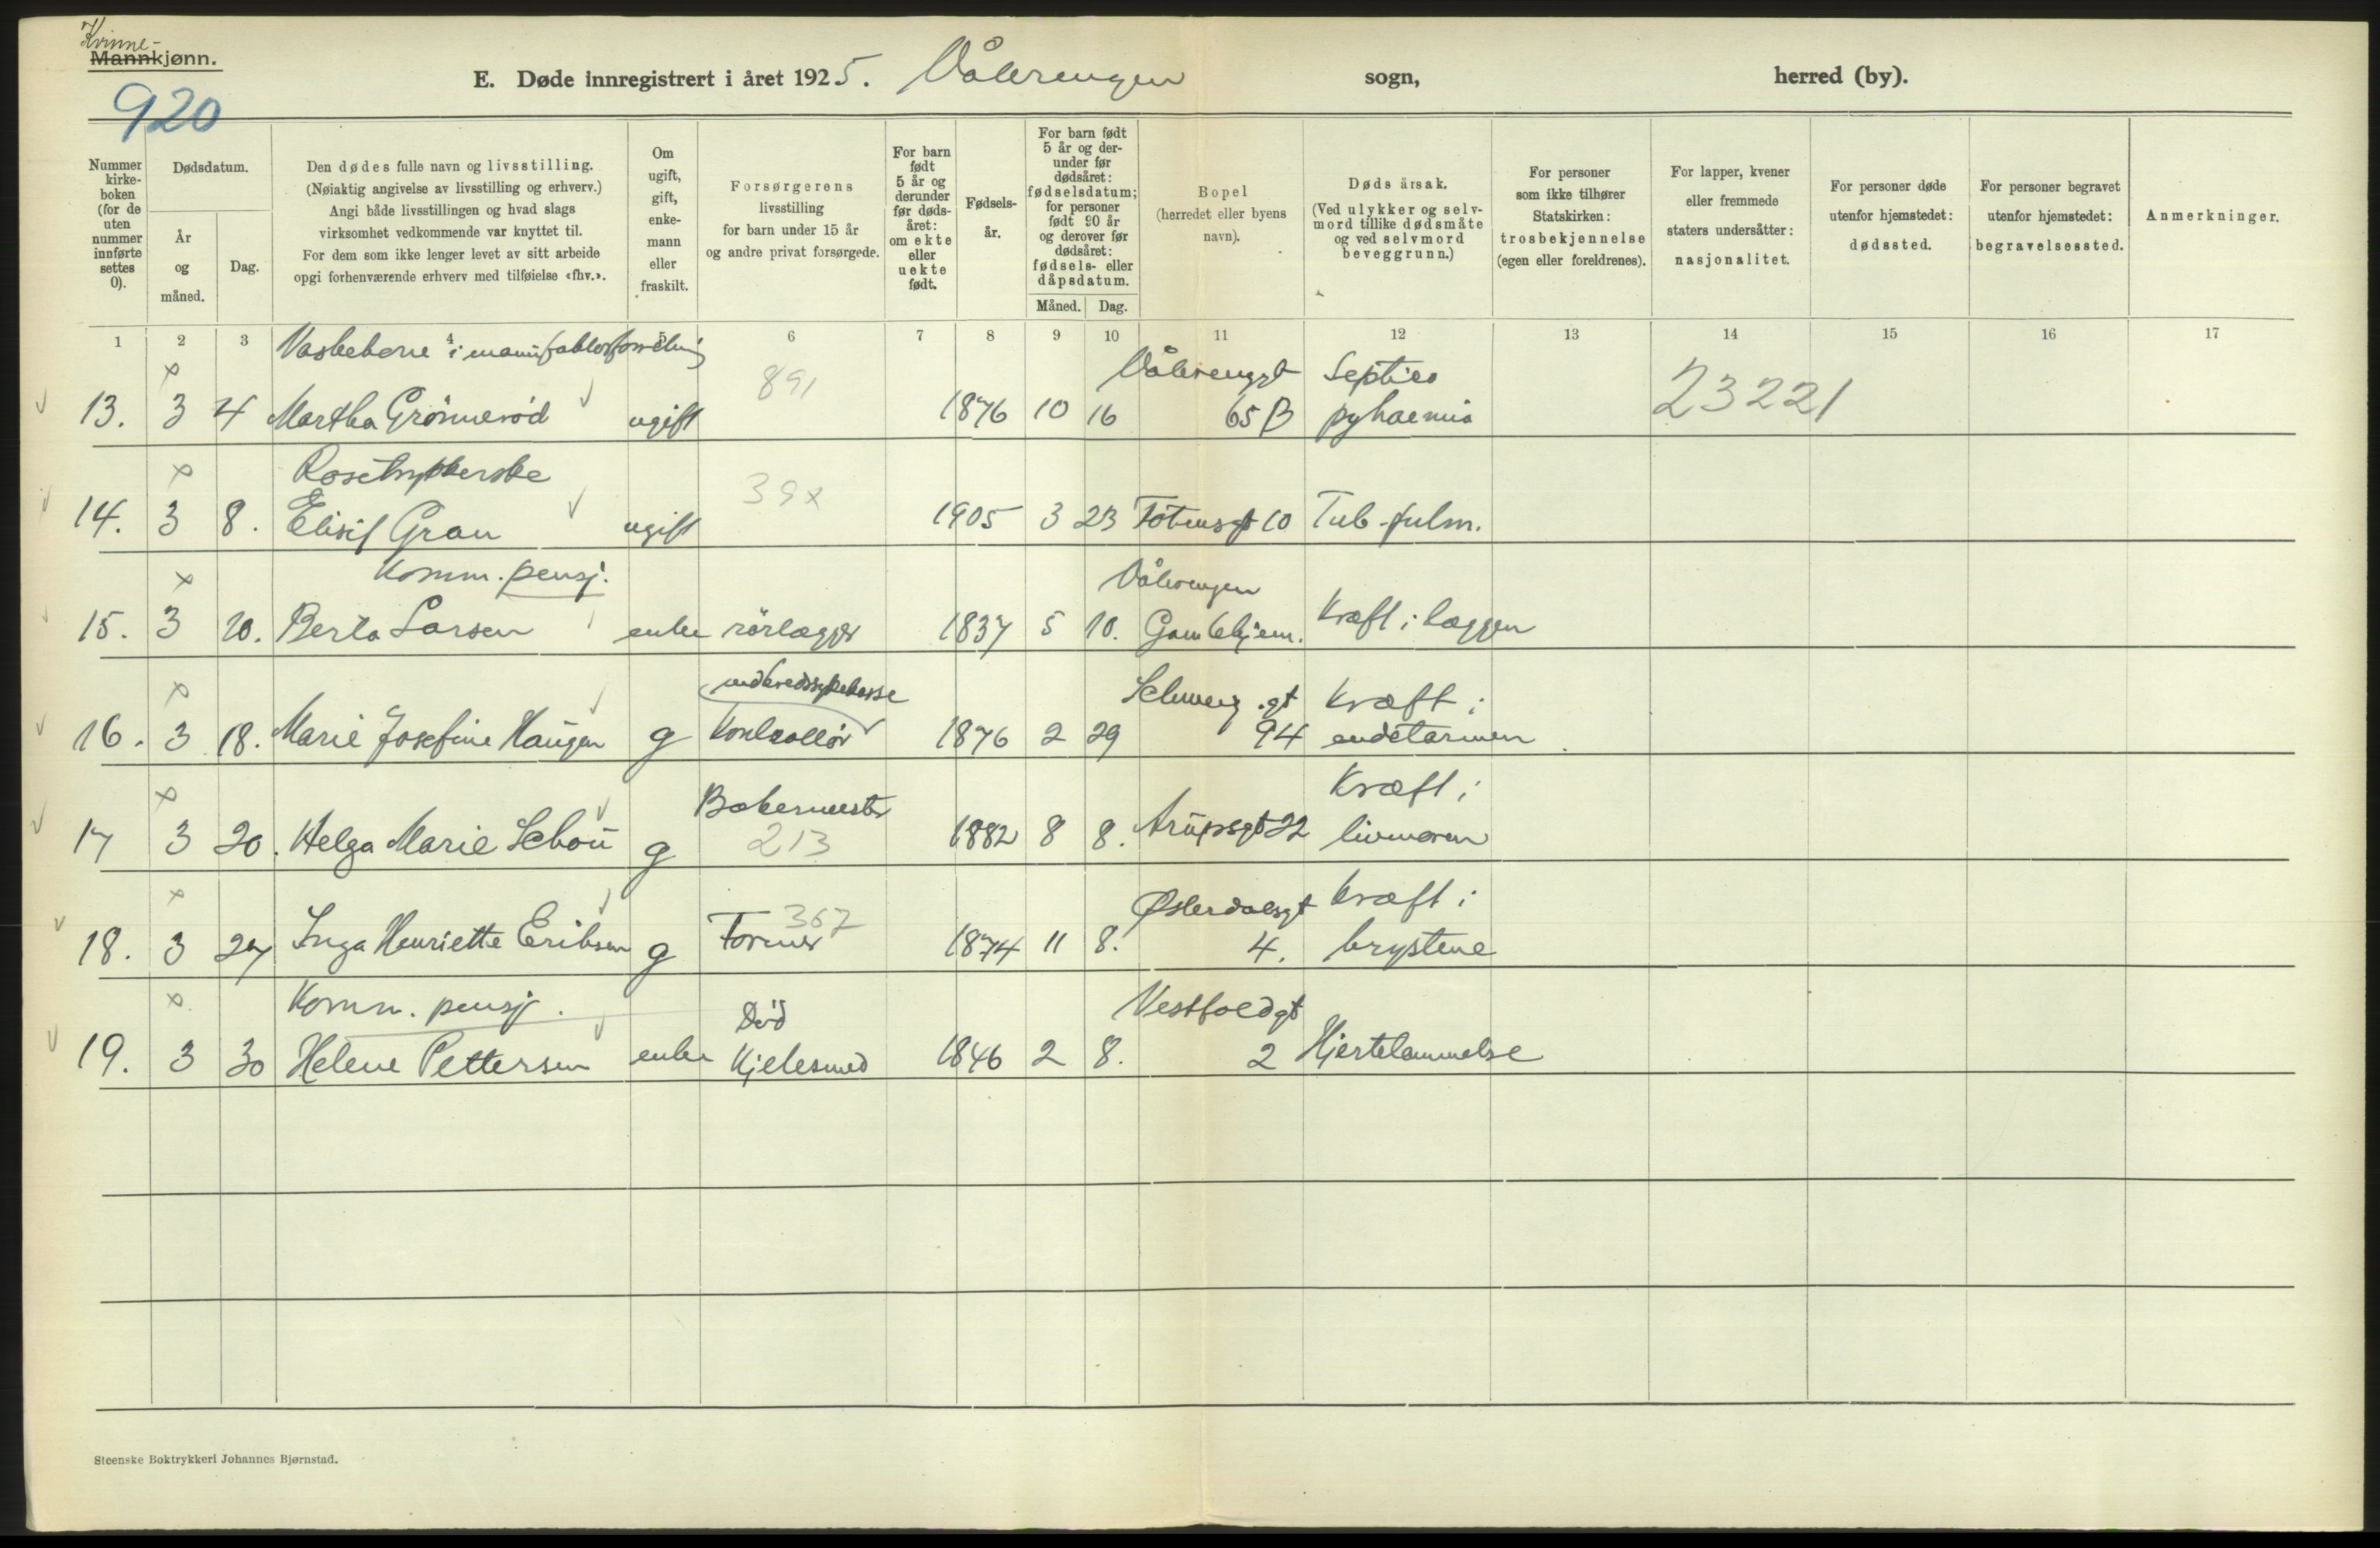 Kvinne-
Mannkjønn.
920
E. Døde innregistrert i året 1925. Vålerengen sogn, herred (by).
Nummer kirke-boken (for de uten nummer innførte settes 0).
Dødsdatum.
År og måned.
Dag.
Den dødes fulle navn og livsstilling.
(Nøiaktig angivelse av livsstilling og erhverv.)
Angi både livsstillingen og hvad slags
virksomhet vedkommende var knyttet til.
For dem som ikke lenger levet av sitt arbeide
opgi forhenværende erhverv med tilføielse «fhv.».
Om ugift, gift, enke-mann eller fraskilt.
Forsørgerens
livsstilling
for barn under 15 år
og andre privat forsørgede.
For barn født 5 år og derunder før døds-året: om ekte eller uekte født.
Fødsels-år.
For barn født 5 år og der-under før dødsåret: fødselsdatum; for personer født 90 år og derover før dødsåret: fødsels- eller dåpsdatum.
Måned. Dag.
Bopel
(herredet eller byens navn).
Dødsårsak.
(Ved ulykker og selv-mord tillike dødsmåte og ved selvmord beveggrunn.)
For personer som ikke tilhører Statskirken: trosbekjennelse (egen eller foreldrenes).
For lapper, kvener eller fremmede staters undersåtter: nasjonalitet.
For personer døde utenfor hjemstedet: dødssted.
For personer begravet utenfor hjemstedet: begravelsessted.
Anmerkninger.
1 2 3 4 5 6 7 8 9 10 11 12 13 14 15 16 17
Vaskekone i manufakturforretning
891 Vålerenggt Septico
13. 3 4 Martha Grönnerød ugift 1876 10 16 65 B pyhaemia 23221
39x
14. 3 8. Elisif Gran ugift 1905 3 23 Totensgt 10 Tub. pulm.
Komm. pensj. Vålerengen
15. 3 10. Berta Larsen enke rörlægger 1837 5 10. Gamlehjem. Kræft i læggen
Schweig.gt Kræft i
16. 3 18. Marie Josefine Haugen g Kontrollör 1876 2 29 94 endetarmen
Bakermester Kræft i
17 3 20. Helga Marie Schou g 213 1882 8 8. Arupsgt 22 livmoren
367 Østerdalsgt Kræft i
18. 3 27 Inga Henriette Eriksen g Former 1874 11 8. 4. brystene
Komm. pensj. Död Vestfoldgt
19. 3 30 Helene Pettersen enke Kjelesmed 1846 2 8. 2 Hjertelammelse
Steenske Boktrykkeri Johannes Bjørnstad.